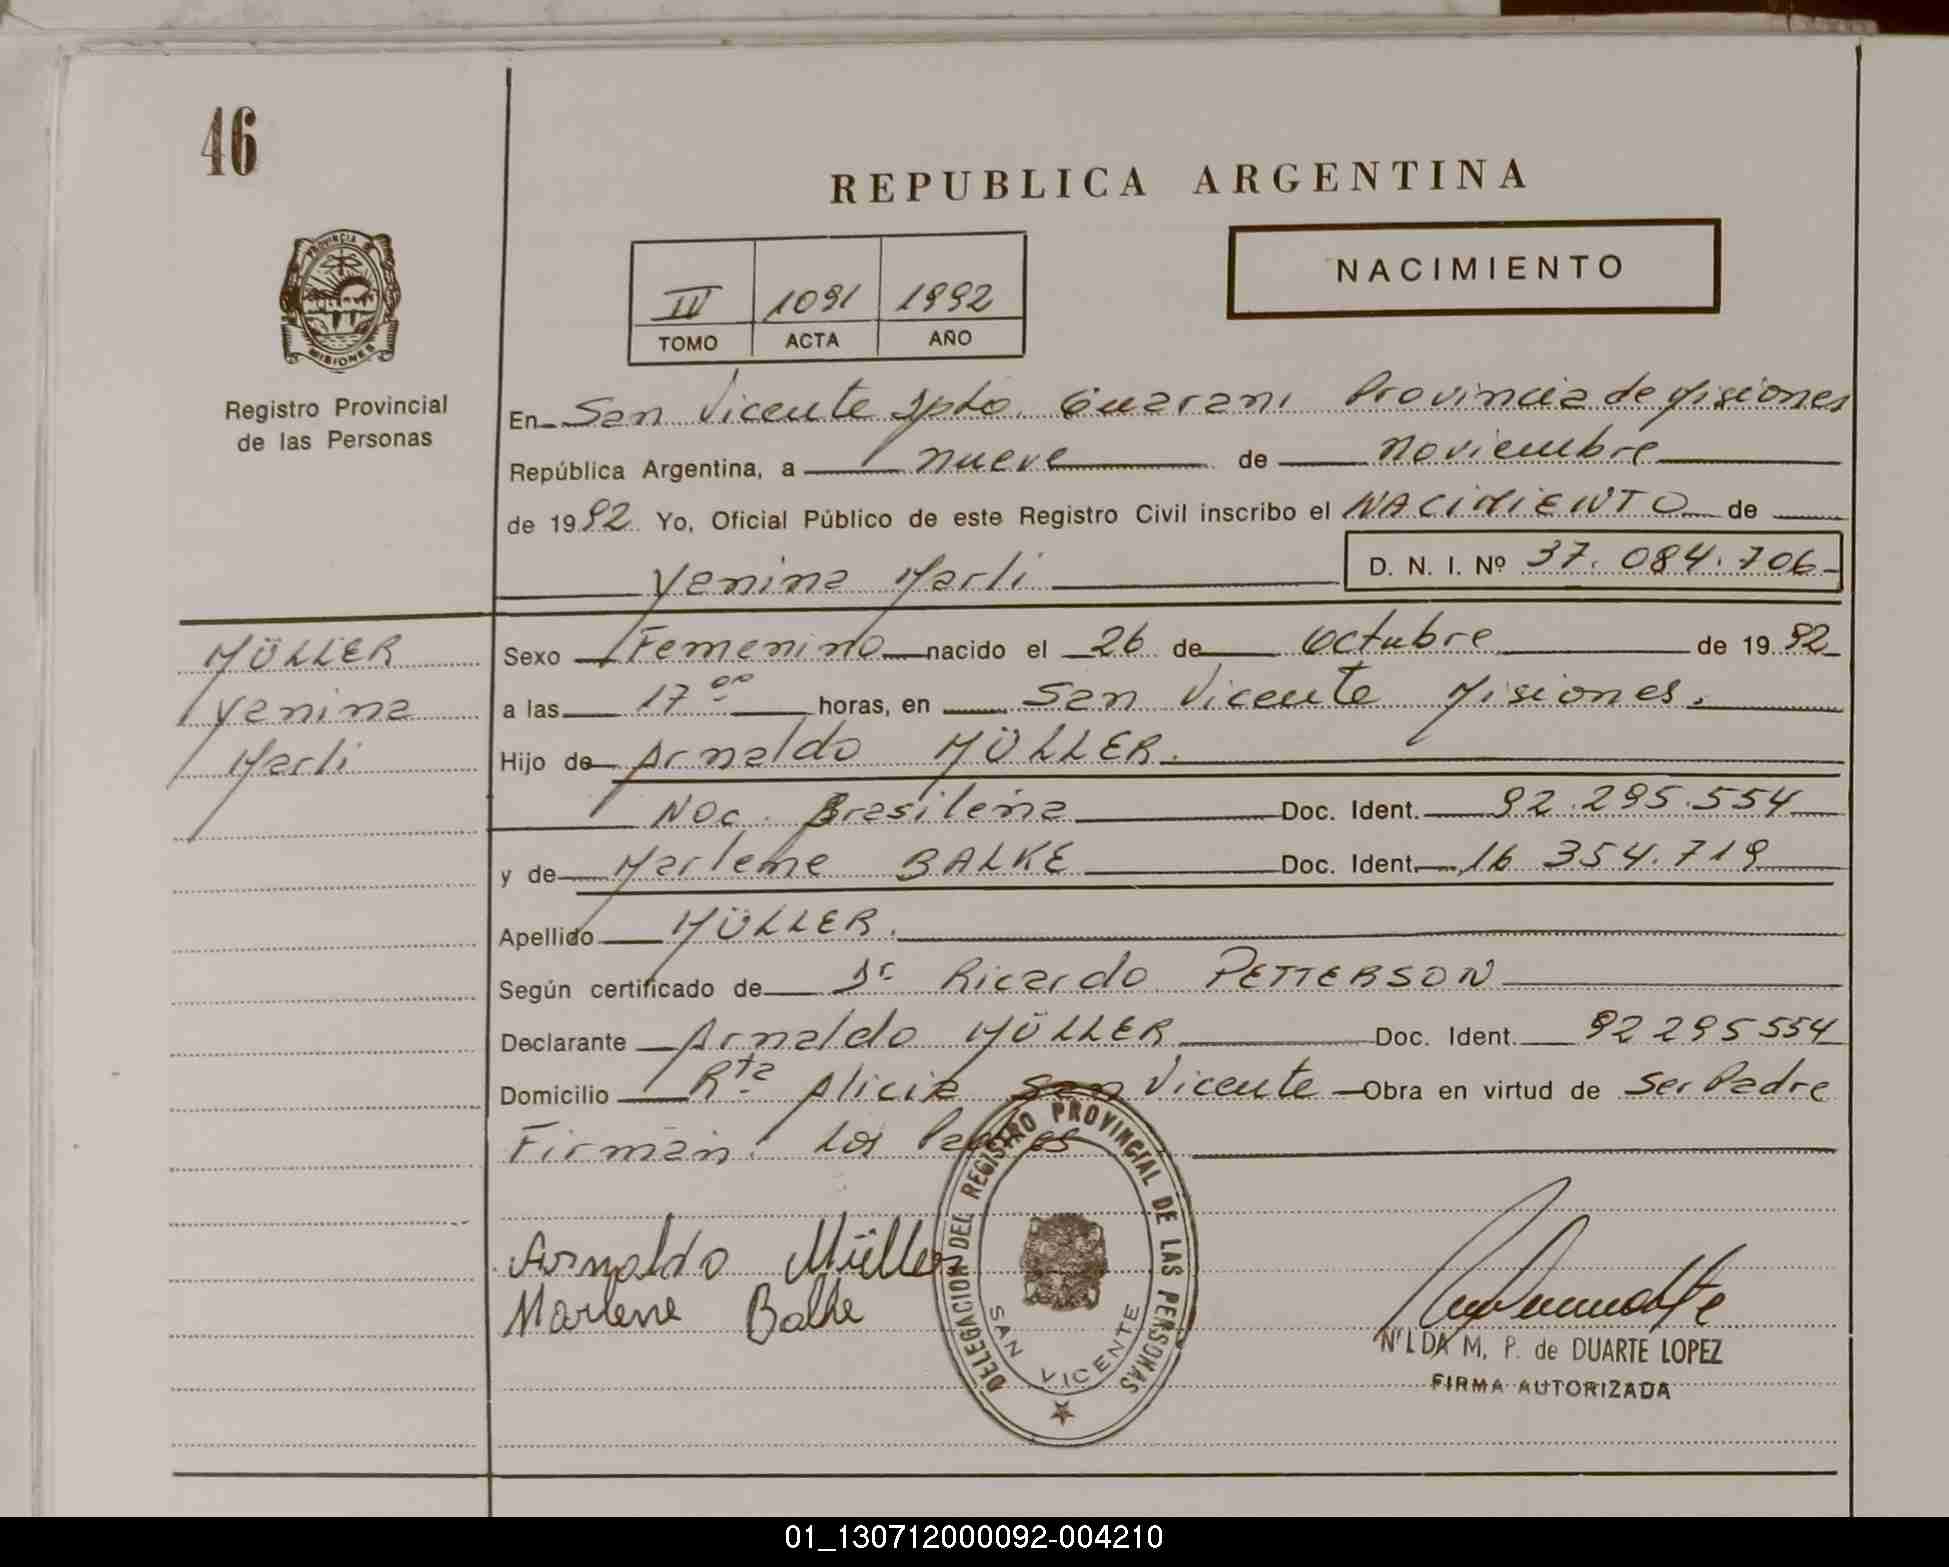 46
REPUBLICA ARGENTINA
NACIMIENTO
III 1091 1992
TOMO ACTA AÑO
PROVINCIA DE MISIONES
Registro Provincial
de las Personas
En San Vicente Dpto. Guarani Provincia de Misiones
República Argentina, a nueve de Noviembre
de 1992 Yo, Oficial Público de este Registro Civil inscribo el NACIMIENTO de
Yanina Marli D. N. I. Nº 37.084.706
MÜLLER
Yanina
Marli
Sexo Femenino nacido el 26 de Octubre de 1992
a las 17 00 horas, en San Vicente Misiones.
Hijo de Arnaldo MÜLLER.
Nac. Brasileña Doc. Ident. 92.295.554
y de Marlene BALKE Doc. Ident. 16 354.719
Apellido MÜLLER.
Según certificado de Dr Ricardo PETTERSON
Declarante Arnaldo MÜLLER Doc. Ident. 92 295 554
Domicilio Rta Alicia San Vicente Obra en virtud de Ser Padre
Firman. Los Padres
Arnaldo Müller
Marlene Balke
DELEGACION DEL REGISTRO PROVINCIAL DE LAS PERSONAS
SAN VICENTE
NILDA M. P. de DUARTE LOPEZ
FIRMA AUTORIZADA
01_130712000092-004210